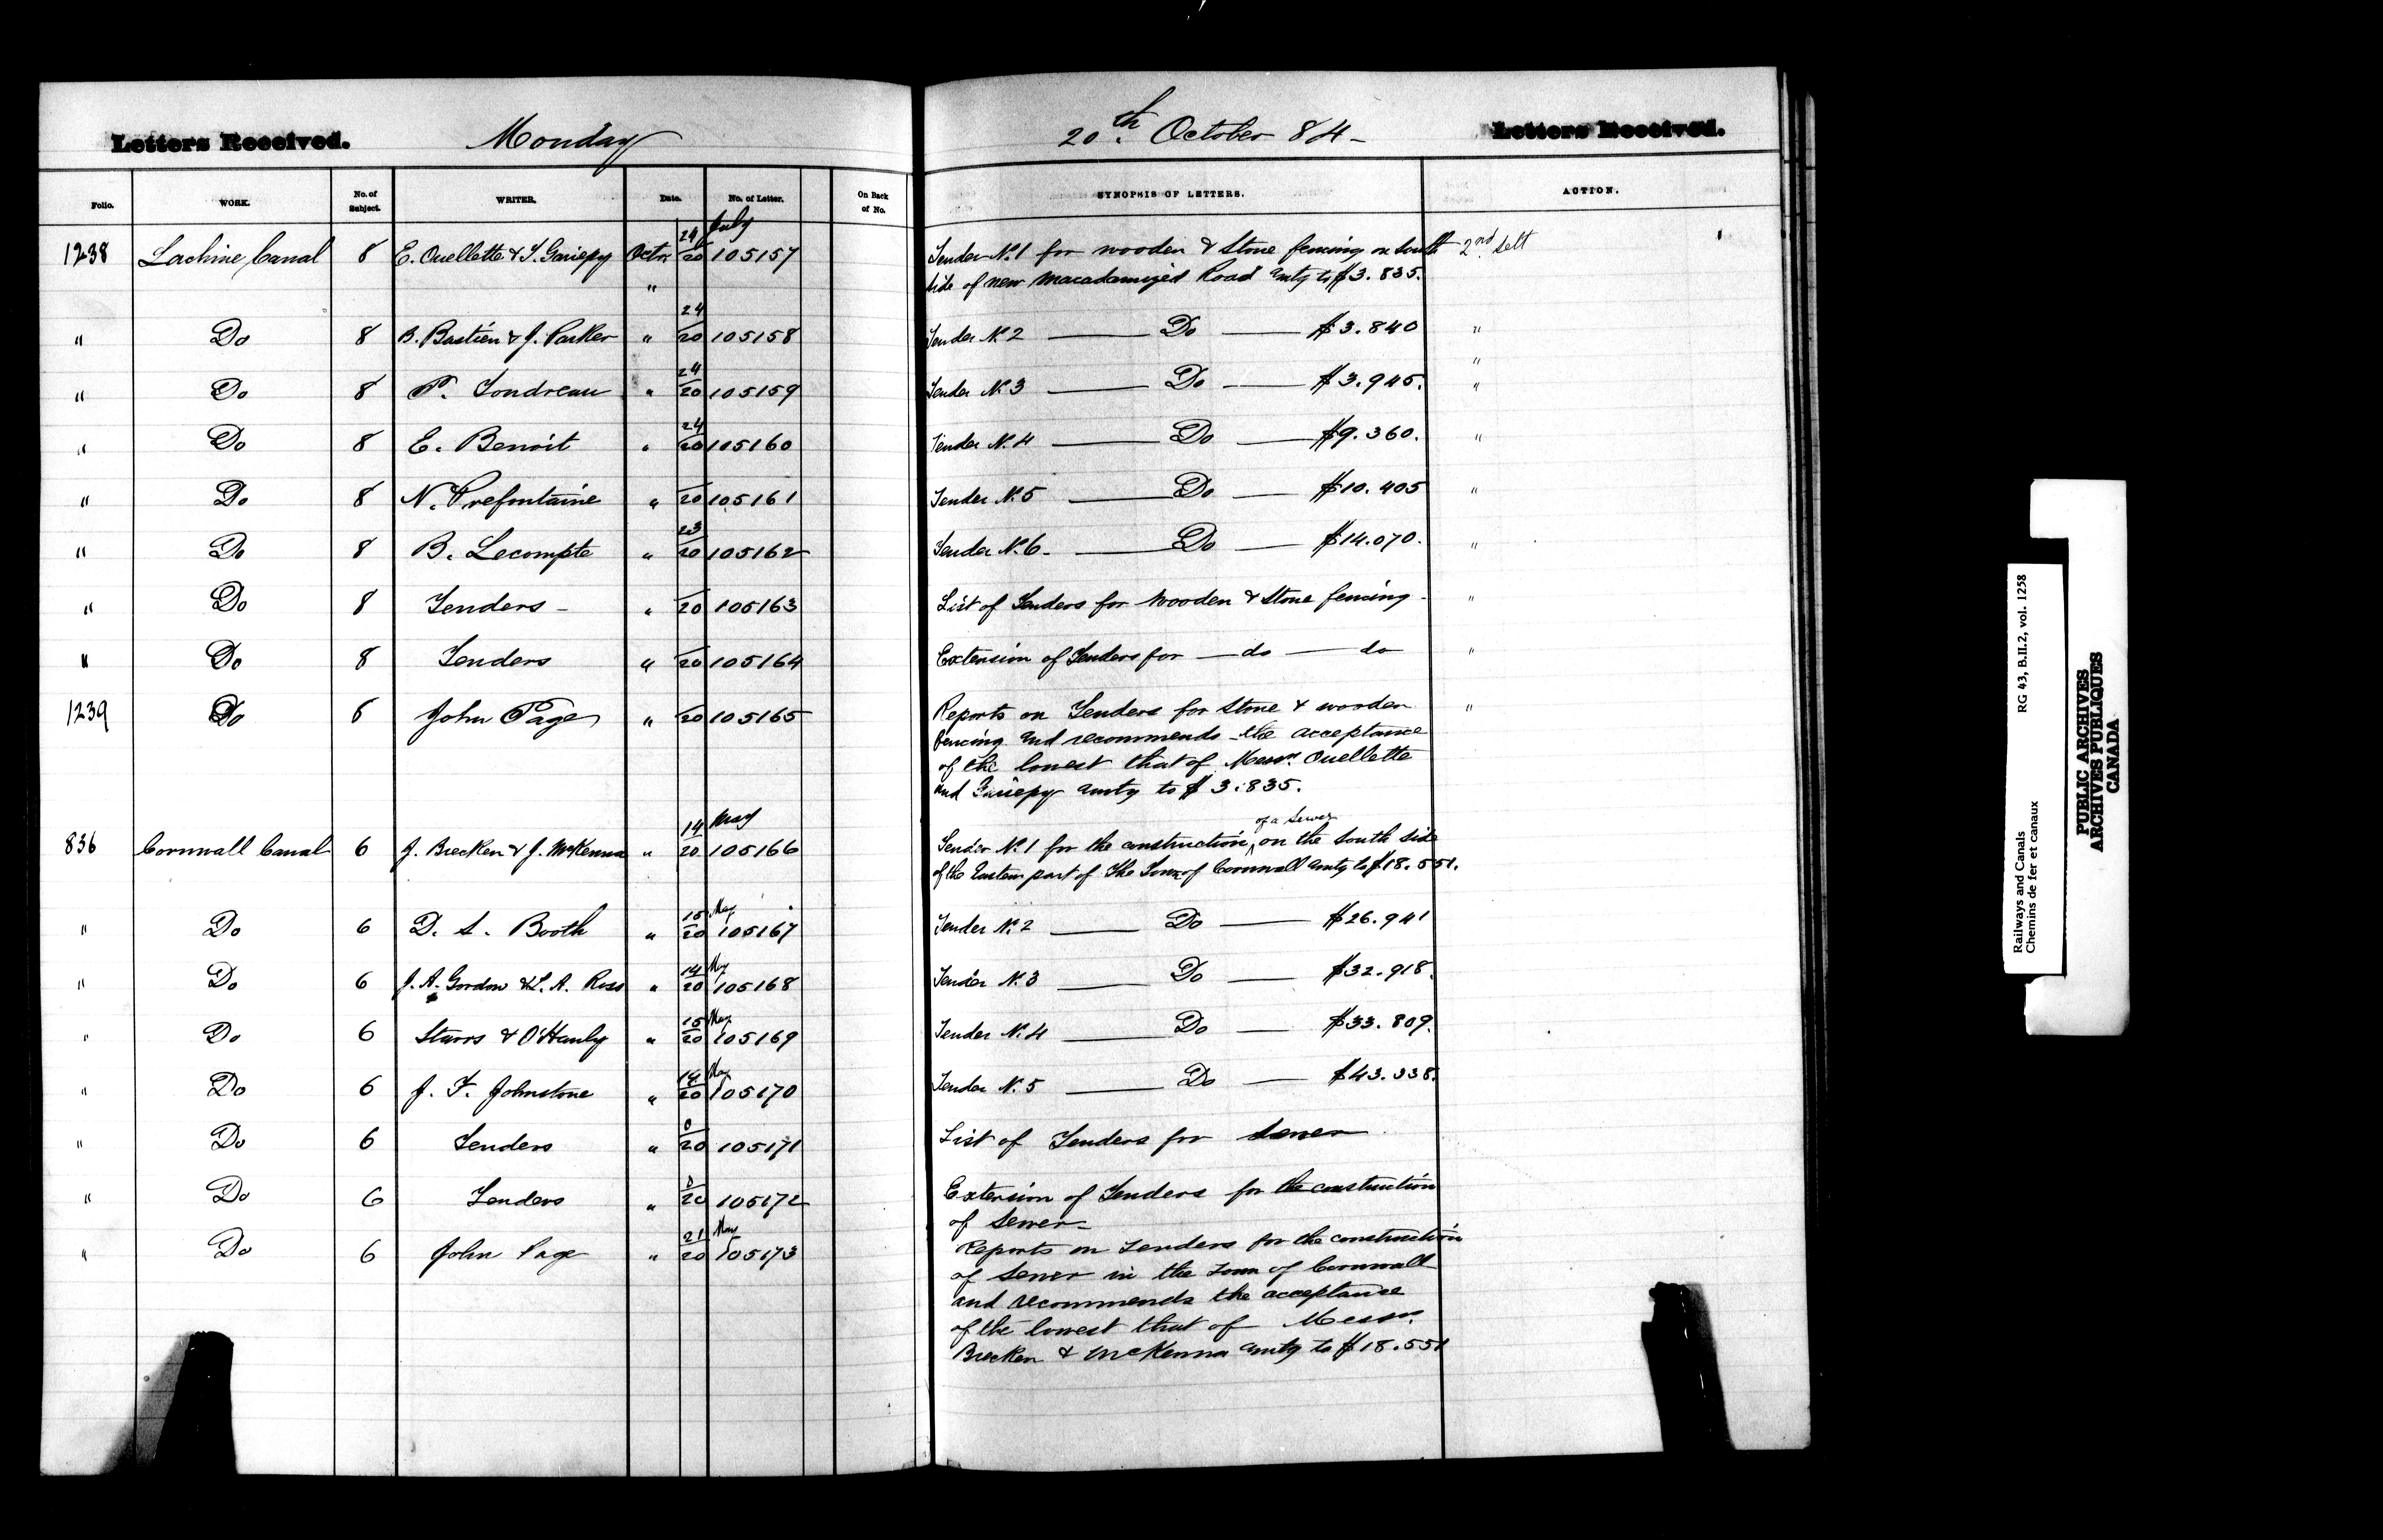 Letters Received. Monday 20th October 84 – Letters Received.
Folio. WORK. No. of Subject. WRITER. Date. No. of Letter. On Back of No. SYNOPSIS OF LETTERS. ACTION.
24 July
1238 Lachine Canal 8 E. Ouellette & J. Gariepy Octr. 20 105157 Tender No. 1 for wooden & Stone fencing on South 2nd
" side of new Macadamized Road amtg to $3.835.
24
" Do 8 B. Bastien & J. Parker " 20 105158 Tender No. 2 — Do — $3.840 "
"
24
" Do 8 " 20 105159 Tender No. 3 — Do — $3.945. "
24
" Do 8 E. Benoit " 20 105160 Tender No. 4 — Do — $9.360. "
" Do 8 N. Prefontaine " 20 105161 Tender No. 5 — Do — $10.405 "
23
" Do 8 B. Lecompte " 20 105162 Tender No. 6 — Do — $14.070. "
" Do 8 Tenders – " 20 105163 List of Tenders for Wooden & Stone fencing – "
" Do 8 Tenders " 20 105164 Extension of Tenders for — do — do "
1239 Do 8 John Page " 20 105165 Reports on Tenders for Stone & wooden "
fencing and recommends the acceptance
of the lowest that of Messrs. Ouellette
and Gariepy amtg to $3.835.
14 May of a Sewer
836 Cornwall Canal 6 J. Brecken & J. McKenna " 20 105166 Tender No. 1 for the construction ^ on the South side
of the Eastern part of the Town of Cornwall amtg to $18.551.
15 May
" Do 6 D. S. Booth " 20 105167 Tender No. 2 — Do — $26.941
14 May
" Do 6 J. A. Gordon & L. A. Ross " 20 105168 Tender No. 3 — Do — $32.918.
15 May
" Do 6 Starrs & O'Hanly " 20 105169 Tender No. 4 — Do — $33.809.
14 May
" Do 6 J. F. Johnstone " 20 105170 Tender No. 5 — Do — $43.338.
0
" Do 6 Tenders " 20 105171 List of Tenders for Sewer
0
" Do 6 Tenders " 20 105172 Extension of Tenders for the construction
of Sewer –
21 May
" Do 6 John Page " 20 105173 Reports on Tenders for the construction
of Sewer in the Town of Cornwall
and recommends the acceptance
of the lowest that of Messrs.
Brecken & McKenna amtg to $18.551
Railways and Canals RG 43, B.II.2, vol. 1258
Chemins de fer et canaux
PUBLIC ARCHIVES
ARCHIVES PUBLIQUES
CANADA